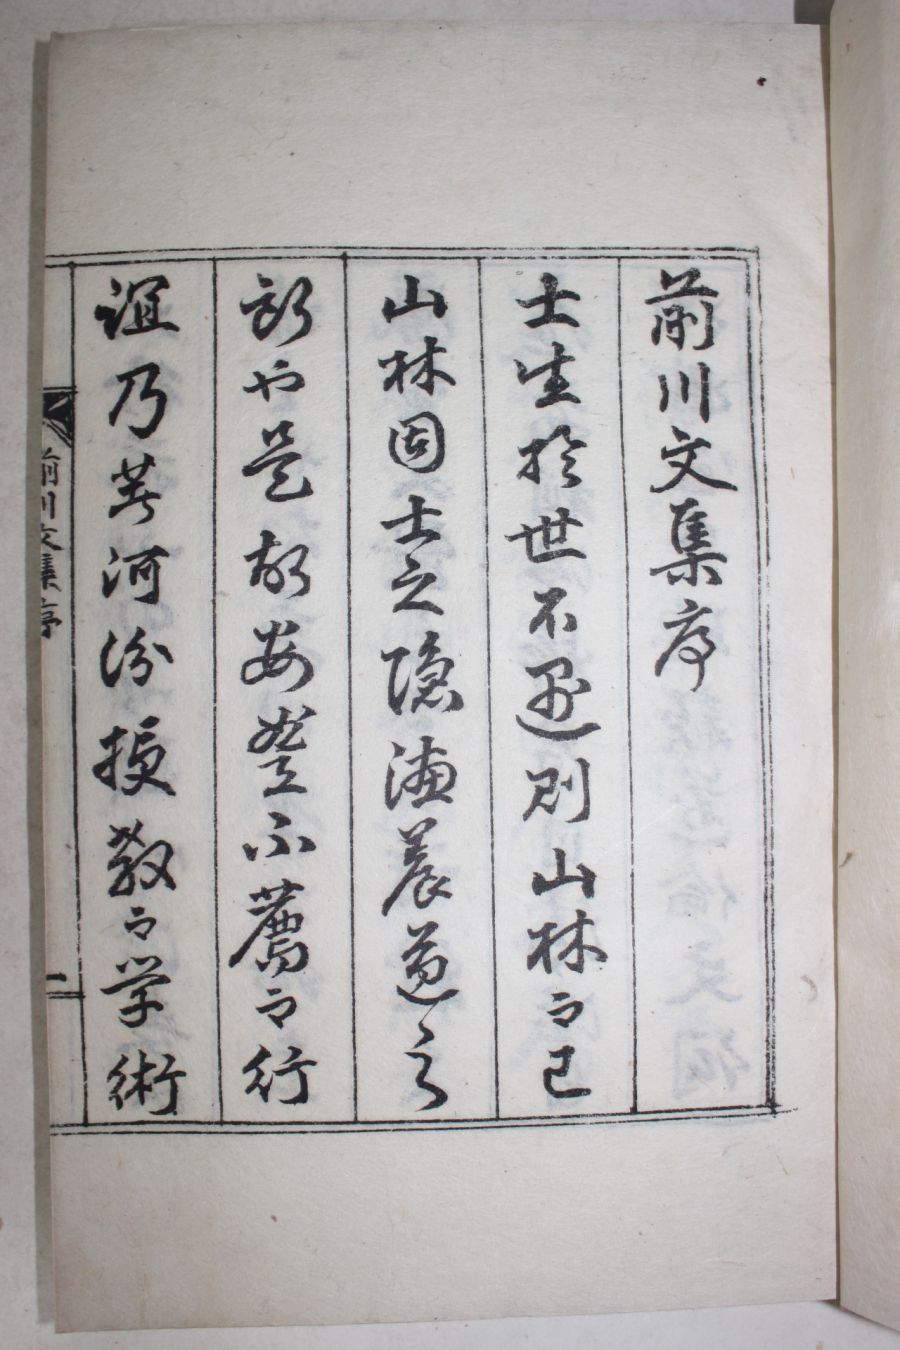 前川文集序
士生於世不遇則山林而已
山林固士之隱德養道之
所也是故安豊不薦而行
誼乃著河汾授教而學術
前川文集序
一